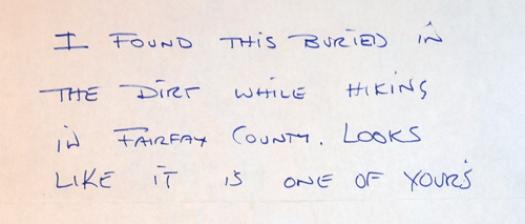 I FOUND THIS BURIED IN
THE DIRT WHILE HIKING
IN FAIRFAX COUNTY. LOOKS
LIKE IT IS ONE OF YOURS